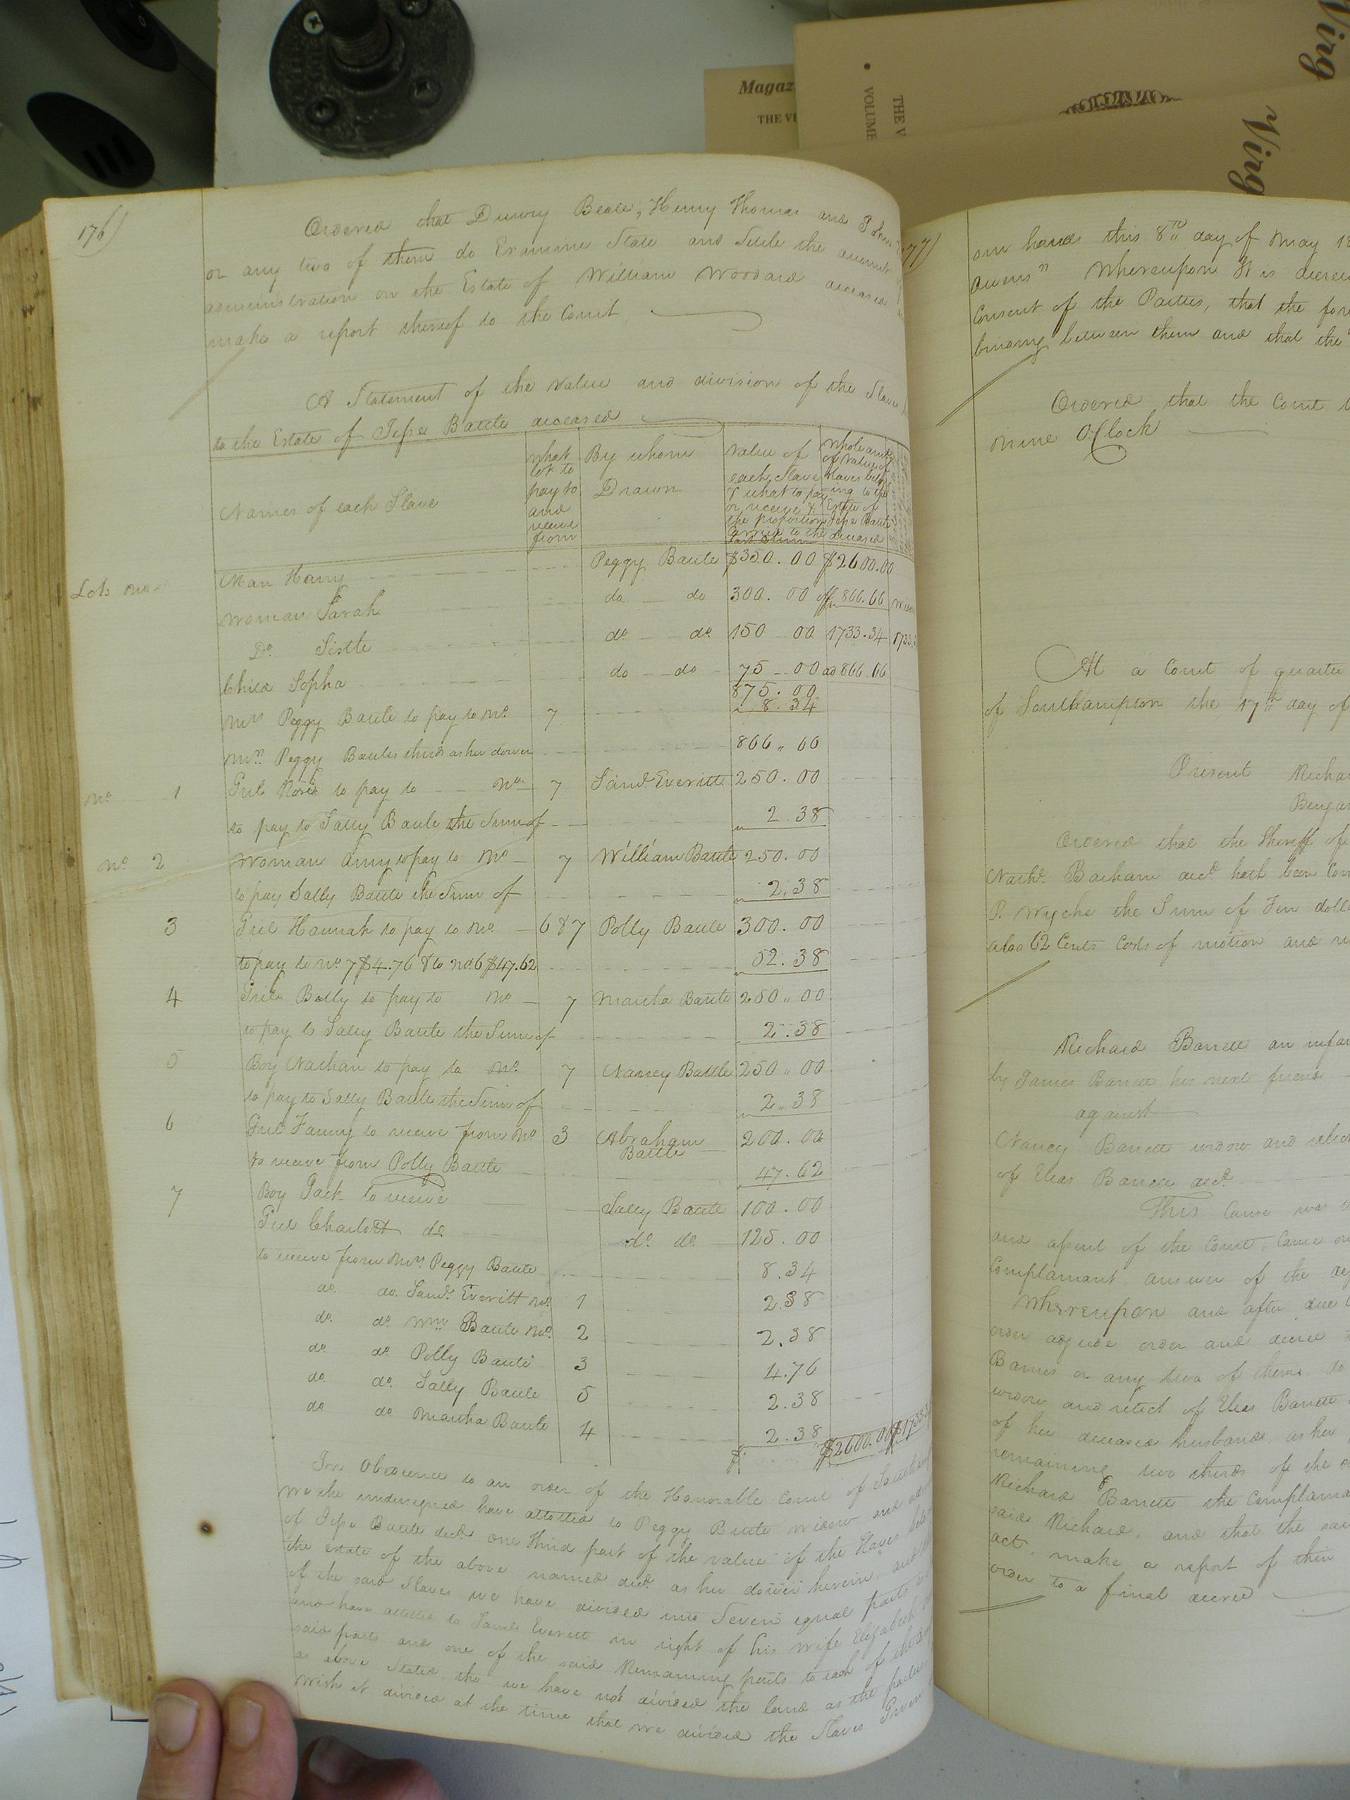 Magaz
THE V
VOLUME
Virg
Virg
176)
Ordered that Drewry Beale, Henry Thomas and
or any two of them do Examine State and Settle the account
administration on the Estate of William Woodard deceased
make a report thereof to the Court
A Statement of the value and division of the Slave
to the Estate of Jesse Battle deceased
Names of each Slave
what lot to pay to and receive from
By whom Drawn
Value of each Slave & what to pay or receive & the proportion
whole amt of Value of Slaves belonging to the Estate of Jesse Battle deceased
Man Harry Peggy Battle $350.00 $2600.00
Woman Sarah do do 300.00 866.66
Do. Sistle do. do. 150 00 1733.34
Child Sopha do do 75 00 866.66
875.00
Mrs Peggy Battle to pay to No. 7 8.34
Mrs. Peggy Battles third as her dower 866.66
No. 1 Girl to pay to No 7 Saml. Everitt 250.00
to pay to Sally Battle the Sum of 2.38
No 2 Woman Amy to pay to No 7 William Battle 250.00
to pay Sally Battle the Sum of 2.38
3 Girl Hannah to pay to No 6 & 7 Polly Battle 300.00
to pay to No 7 $4.76 & to No. 6 $47.62 52.38
4 Girl to pay to No 7 Martha Battle 250.00
to pay to Sally Battle the Sum of 2.38
5 Boy Nathan to pay to No. 7 Nancy Battle 250.00
to pay to Sally Battle the Sum of 2.38
6 Girl Fanny to receive from No 3 Abraham Battle 200.00
to receive from Polly Battle 47.62
7 Boy Jack to receive Sally Battle 100.00
Girl Charlott do. do. do. 125.00
to receive from Mrs. Peggy Battle 8.34
do. do. Saml. Everitt No. 1 2.38
do. do. Wm Battle No. 2 2.38
do. do. Polly Battle 3 4.76
do. do. Sally Battle 5 2.38
do. do. Martha Battle 4 2.38
$ $2600.00
In Obedience to an order of the Honorable Court of
We the undersigned have allotted to Peggy Battle widow and
of Jesse Battle decd. one third part of the value of the Slaves
the estate of the above named decd. as her dower herein, and
of the said Slaves we have divided into Seven equal parts
and have allotted to Saml. Everitt in right of his wife Elizabeth
said parts and one of the said Remaining parts to each of the
as above Stated, the we have not divided the land as the parties
wish it divided at the time that we divided the Slaves Given
177)
our hands this 8th day of May
Whereupon It is decreed
Consent of the Parties, that the
binding between them and that the
Ordered that the Court
nine OClock
At a Court of quarter
of Southampton the 17th day of
Present Richa
Ordered that the Sheriff of
Nathl. Barham decd. hath been
P. Wyche the Sum of Ten dolla
also 62 Cents Costs of motion and
Richard Barrett an infa
by James Barrett his next friend
against
Nancy Barrett widow and relict
of Elias Barrett decd.
This cause was
and assent of the Court, came on
Complainant, answer of the
Whereupon and after due
order adjudge order and decree
Barnes or any two of them, do
widow and relict of Elias Barrett
of her deceased husband as her
remaining two thirds of the
Richard Barrett the Complaina
said Richard, and that the said
act, make a report of their
order to a final decree